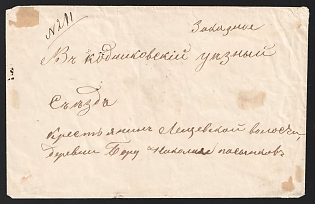 № 211
Заказное
Въ Кадниковскій уѣзный
Съѣздъ
крестьянин Лещевской волости
деревни Бору Николая